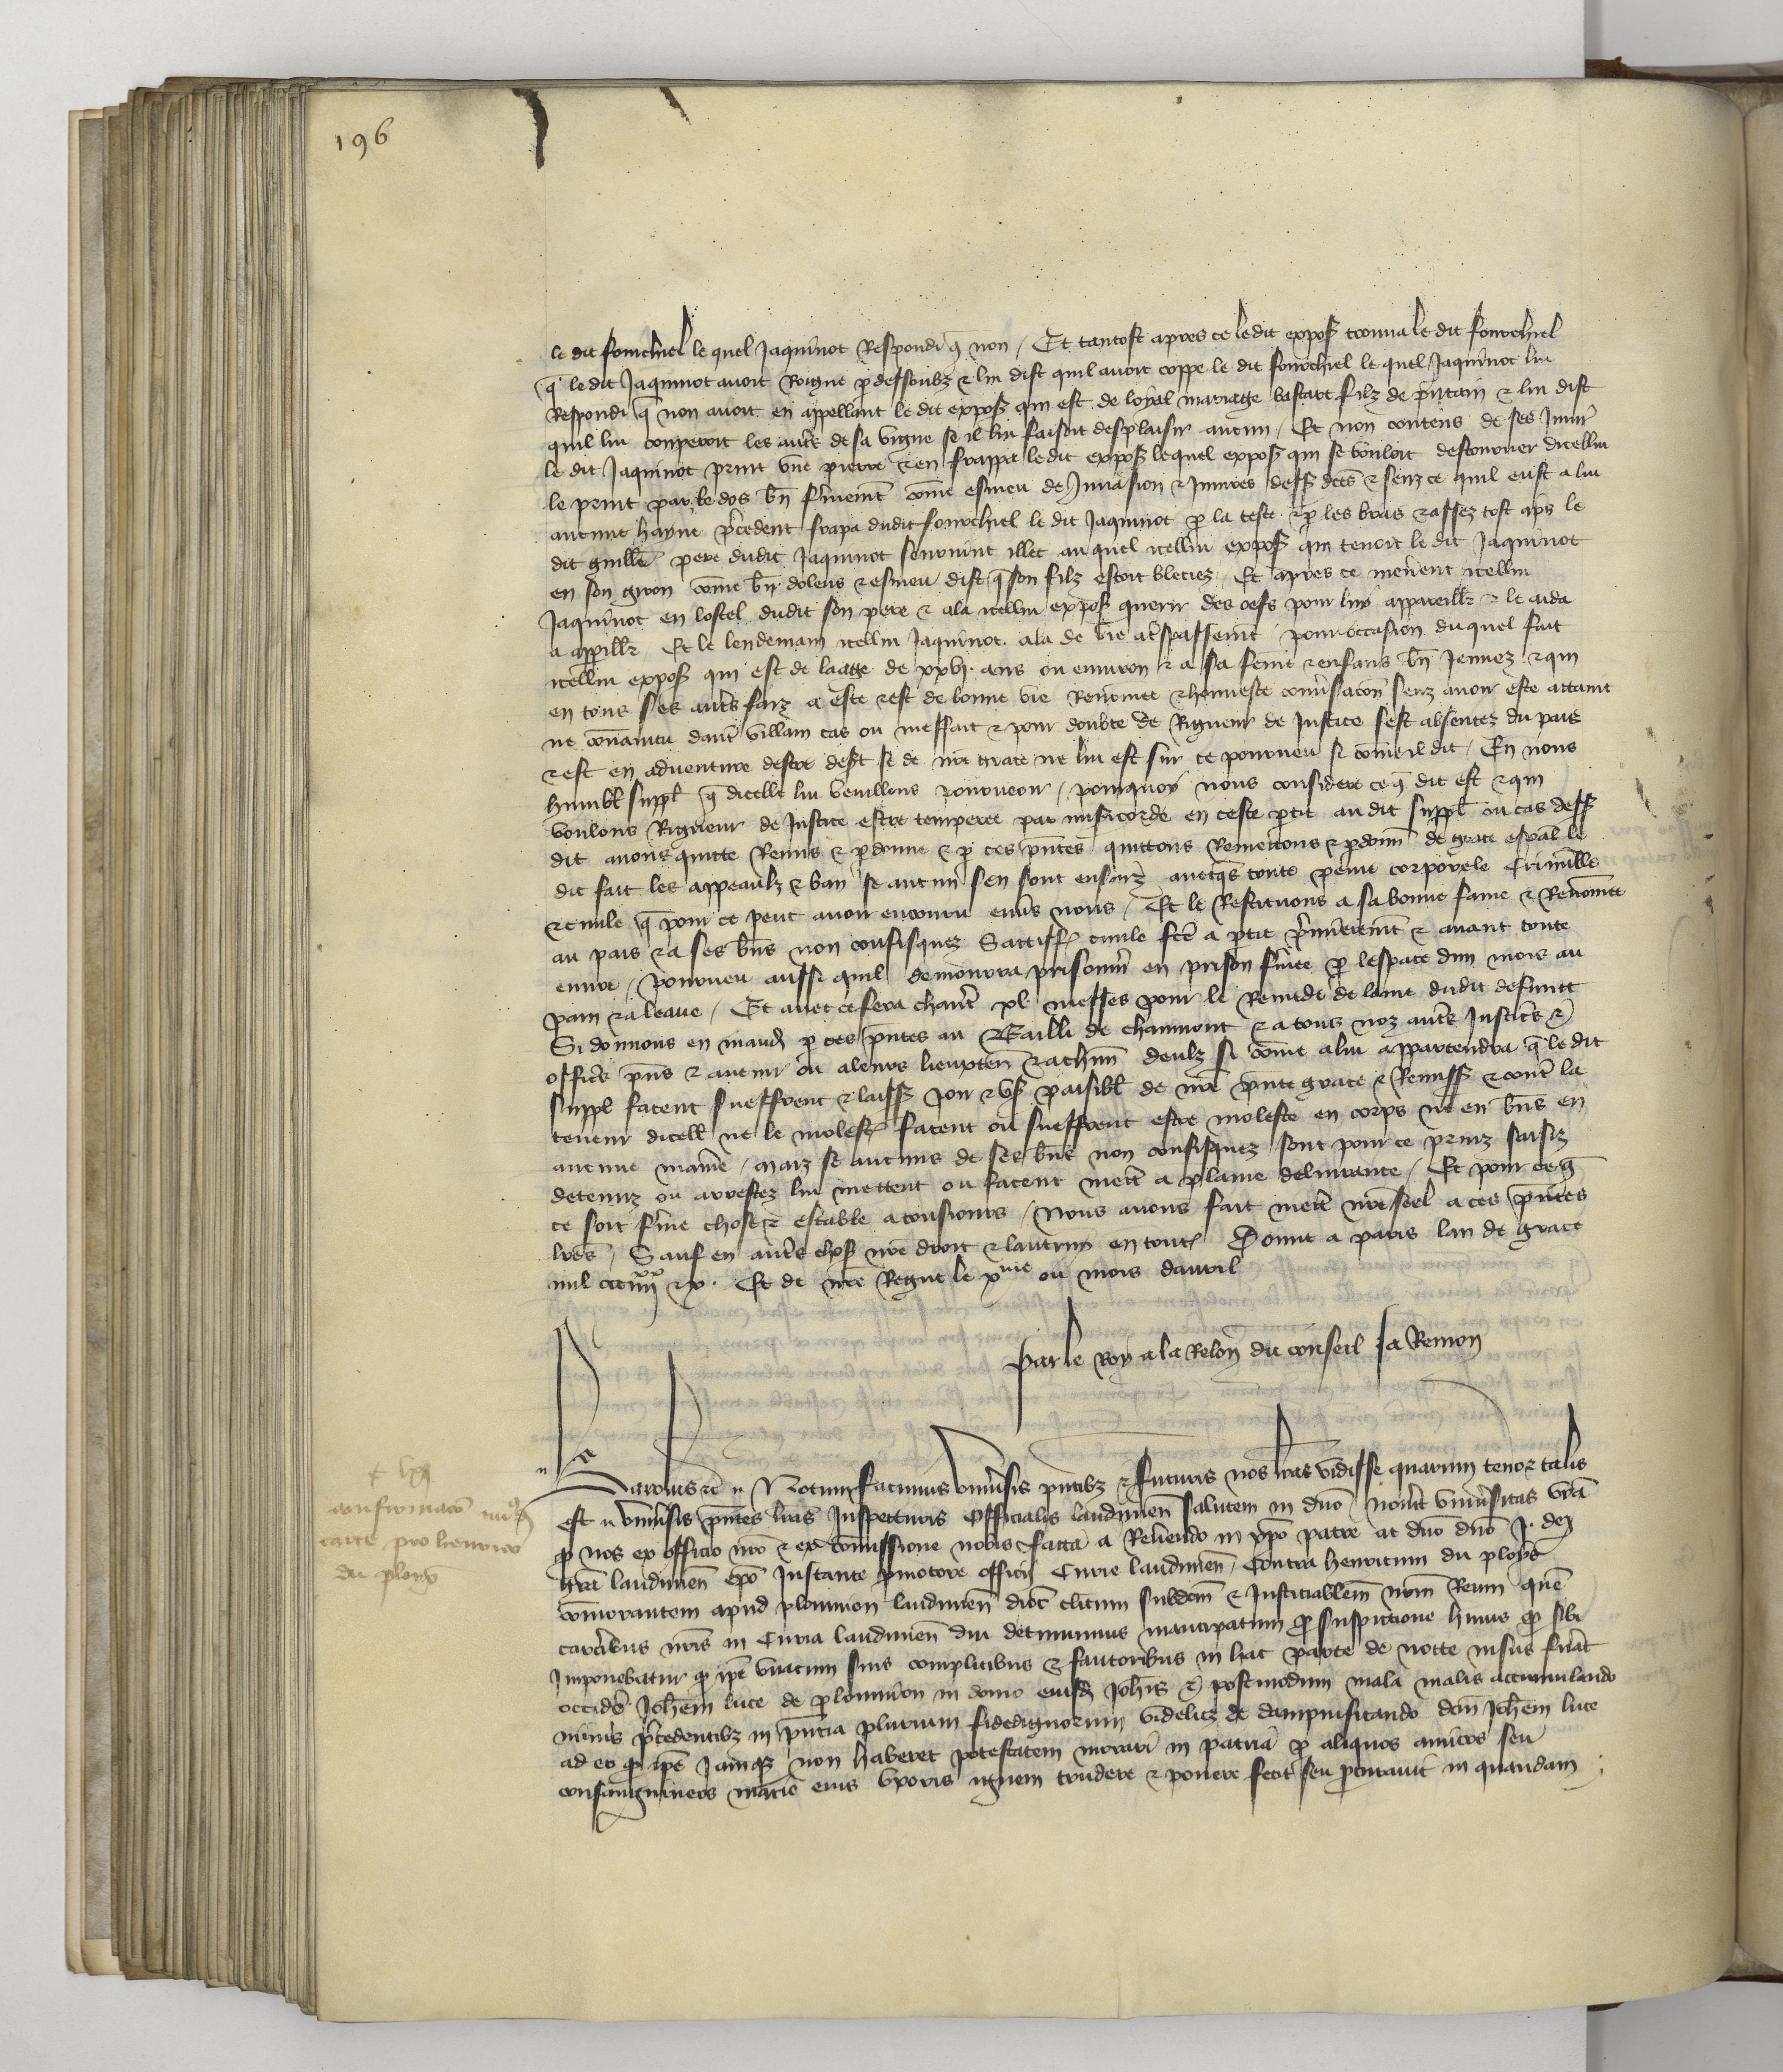 196
le dit fourchiel le quel Jaquinot Respondi q̄ non / Et tantost apres ce ledit expoſ trouua le dit fourchiel
q̄ le dit Jaquinot auoit Roigne p dessoubz & lui dist quil auoit coppe le dit fourchiel le quel Jaquinot lui
Respondi q̄ non auoit en appellant le dit expoſ qui est de loyal mariage bastart filz de putain & lui dist
quil lui couperoit les autr̄s de sa vigne se il lui faisoit desplaisir aucun / Et non contens de ses Iniur̄
le dit Jaquinot print vne pierre & en frappa ledit expoſ lequel expoſ qui se vouloit destourner dicellui
le print par le dos bn̄ fermem̄t com̄e esmeu de Inuasion & Iniures dessſ dc̄es & senz ce quil eust a lui
aucune hayne p̄cedent frapa dudit fourchiel le dit Jaquinot p la teste & p les bras & assez tost ap̄s le
dit guill̄e pere dudit Jaquinot seuruint illec auquel icellui expoſ qui tenoit le dit Jaquinot
en son giron com̄e bn̄ dolens & esmeu dist q̄ son filz estoit bleciez / Et apres ce menerent icellui
Jaquinot en lostel dudit son pere & ala icellui expoſ querir des oefs pour luy appareill̄r & le aida
a appeill̄r / Et le lendemain icellui Jaquinot ala de vie a trespassem̄t pour occasion duquel fait
icellui expoſ qui est de laage de xxvj. ans ou enuiron & a sa fem̄e & enfans bn̄ Jeunez & qui
en tous ses autr̄s faiz a este & est de bonne vie Renom̄ee & honneste conūsac̄on senz auoir este attaint
ne conuaincu daut̄ villain cas ou meffait & pour doubte de Rigueur de Justice sest absentez du pais
& est en aduenture destre desſt se de nr̄e grace ne lui est sur ce pourueu si com̄e il dit / En nous
humbl̄ suppl̄ q̄ dicelle lui vueillons pourueoir / pourquoy nous considere ce q̄ dit est & qui
voulons Rigueur de Justice estre temperee par misericorde en ceste p̄tie au dit suppl̄ ou cas dessſ
dit auons quitte Remis & pdonne & p ces p̄ntes quittons Remettons & pdonn̄ de grace esp̄al le
dit fait les appeaulz & ban se aucun sen sont ensuiz auecq̄s toute peine corporele Criminelle
& ciuile q̄ pour ce peut auoir encouru enūs nous / Et le Restituons a sa bonne fame & Renom̄ee
au pais & a ses bn̄s non confisquez Satiff̄ ciuile fc̄e a ptie p̄mierem̄t & auant toute
euure / pourueu aussi quil demourra prisonn̄ en prison ferm̄ee p lespace dun mois au
pain & a leaue / Et auec ce fera chant̄ xl messes pour le Remede de lame dudit defunct
Si donnons en mand̄ p ces p̄ntes au Bailli de chaumont & a tous noz autr̄s Justic̄s &
offic̄s p̄ns & auenir ou a leurs lieuxten̄ & a chun̄ deulz si com̄e a lui appartendra q̄ le dit
suppl̄ facent sueffrent & laissſ Joir & vſ paisibl̄ de nr̄e p̄nte grace & Remissſ & cont̄ la
teneur dicell̄ ne le molest̄ facent ou sueffrent estre moleste en corps ne en bn̄s en
aucune maniē / maiz se aucuns de ses bn̄s non confisquez sont pour ce prins saisiz
detenuz ou arrestez lui mettent ou facent mett̄ a plaine deliurance / Et pour ce q̄
ce soit ferme chose & estable a tousiours / Nous auons fait mett̄ nr̄e seel a ces p̄ntes
lr̄es / Sauf en autr̄s choſ nr̄e droit & lautrui en tout̄ Donne a paris lan de grace
mil ccc iiijxx & x. Et de nr̄e Regne le xme ou mois dauril
Par le Roy a la Relon̄ du conseil Ja Remon
confirmac̄o
carte pro henrico
du ploys
Karolus &c̄ Notum facimus vniu̇sis p̄ntibz & futuris nos lr̄as vidisse quarum tenor talis
est vniu̇sis p̄ntes lr̄as Inspecturis Officialis laudunen̄ salutem in dn̄o / nou̇it vniu̇sitas vr̄a
q nos ex officio nr̄o & ex com̄issione nobis facta a Reu̇endo in xp̄o patre ac dn̄o dn̄o J. dei
gr̄a laudunen̄ ep̄o Instante pmotore officii Curie laudunen̄ / Contra henricum du ploys
com̄orantem apud plomion laudunen̄ dioc̄ cl̄icum subditū & Justiciabilem nr̄m Reum quē
carc̄ibus nr̄is in Curia laudunen̄ diu detinuimus mancipatum p suspicione huius q sibi
Imponebatur q ip̄e vnacum suis complicibus & fautoribus in hac parte de nocte nisus fuat̄
occid̄e Joh̄em luce de plomion in domo eiusd̄ Joh̄is & postmodum mala malis accumulando
minis p̄cedentibz in p̄ntia plurium fidedignorum videlicz de dampnificando dc̄m Joh̄em luce
ad eo q ip̄e Jamqz non haberet potestatem morari in patria p aliquos amicos seu
consanguineos marie eius vxoris ignem trudere & ponere fecit seu pcurauit in quandam